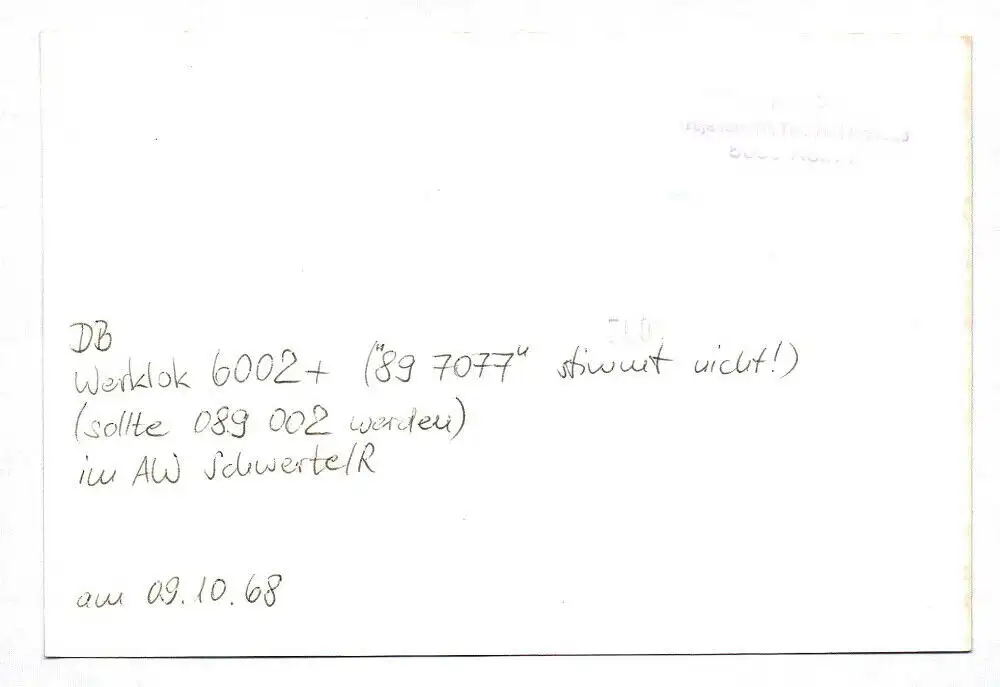 DB
Werklok 6002+ ("89 7077" stimmt nicht!)
(sollte 089 002 werden)
im AW Schwerte/R
am 09.10.68